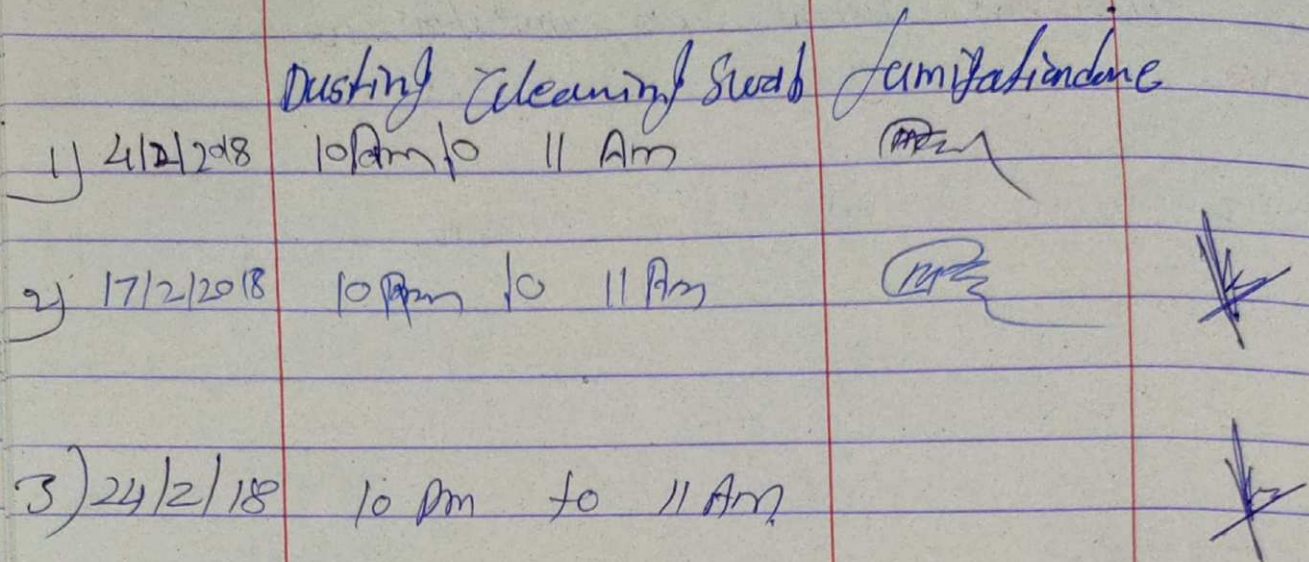 Dusting Cleaning Swab fumigationdone
1) 4/2/2018 10 Am to 11 Am
2) 17/2/2018 10 Am to 11 Am
3) 24/2/18 10 Am to 11 Am